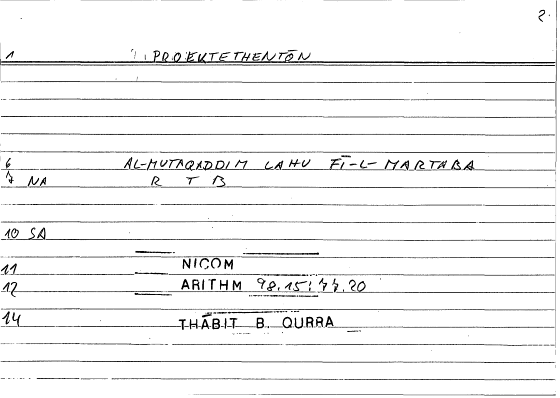 2.
1 PROEKTETHENTŌN
6 AL-MUTAQADDIM LAHU FĪ-L-MARTABA
7 NA R T B
10 SA
11 NICOM
12 ARITHM 98.15; 44.20
14 THĀBIT B. QURRA